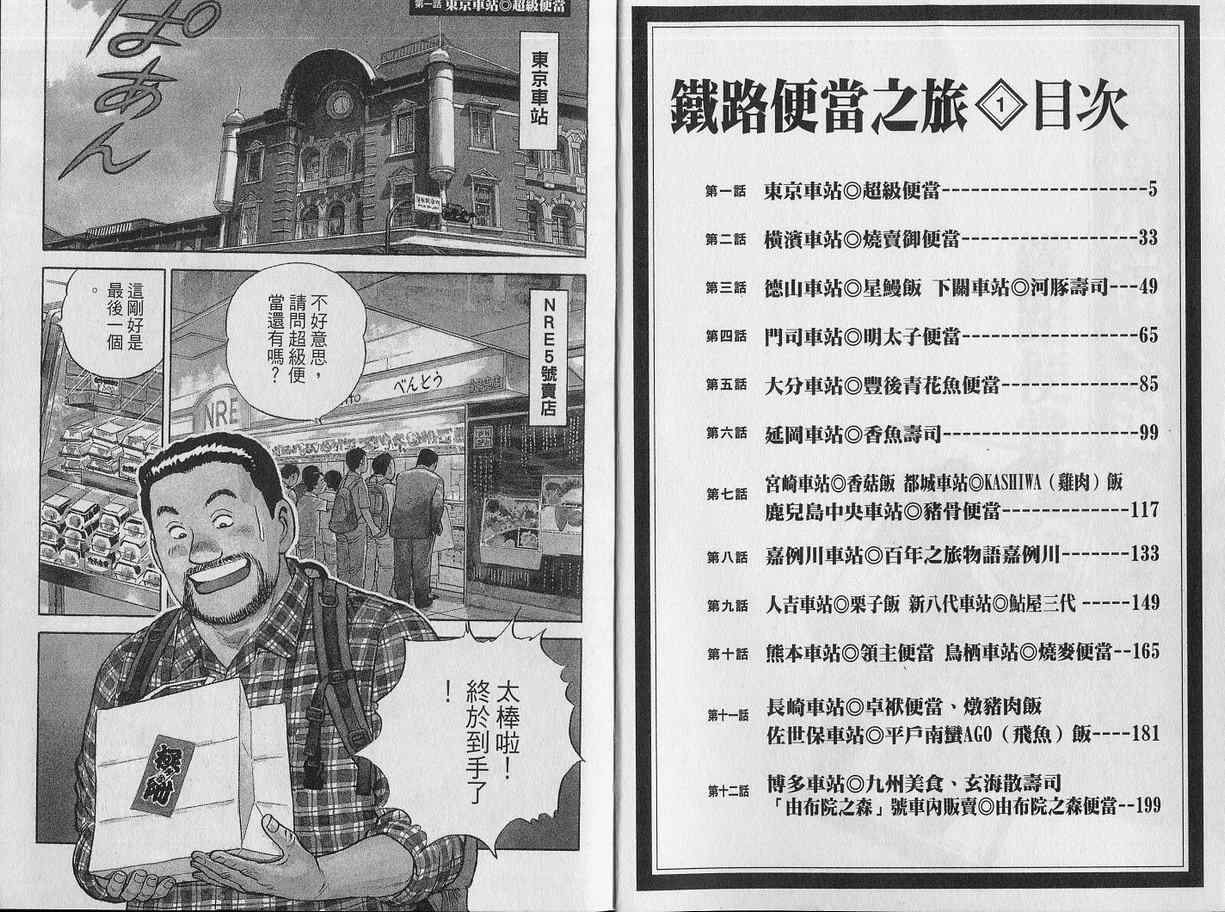 鐵路便當之旅 1 目次
第一話 東京車站◎超級便當----------------------5
第二話 橫濱車站◎燒賣御便當-------------------33
第三話 德山車站◎星鰻飯 下關車站◎河豚壽司---49
第四話 門司車站◎明太子便當-------------------65
第五話 大分車站◎豐後青花魚便當---------------85
第六話 延岡車站◎香魚壽司---------------------99
第七話 宮崎車站◎香菇飯 都城車站◎KASHIWA（雞肉）飯
鹿兒島中央車站◎豬骨便當--------------117
第八話 嘉例川車站◎百年之旅物語嘉例川-------133
第九話 人吉車站◎栗子飯 新八代車站◎鮎屋三代 -----149
第十話 熊本車站◎領主便當 鳥栖車站◎燒麥便當--165
第十一話 長崎車站◎卓袱便當、燉豬肉飯
佐世保車站◎平戶南蠻AGO（飛魚）飯----181
第十二話 博多車站◎九州美食、玄海散壽司
「由布院之森」號車內販賣◎由布院之森便當--199
第一話 東京車站◎超級便當
東京車站
ぱあん
NRE5號賣店
不好意思，
請問超級便
當還有嗎？
這剛好是
最後一個
。
NRE
べんとう
極附
太棒啦！
終於到手了
！